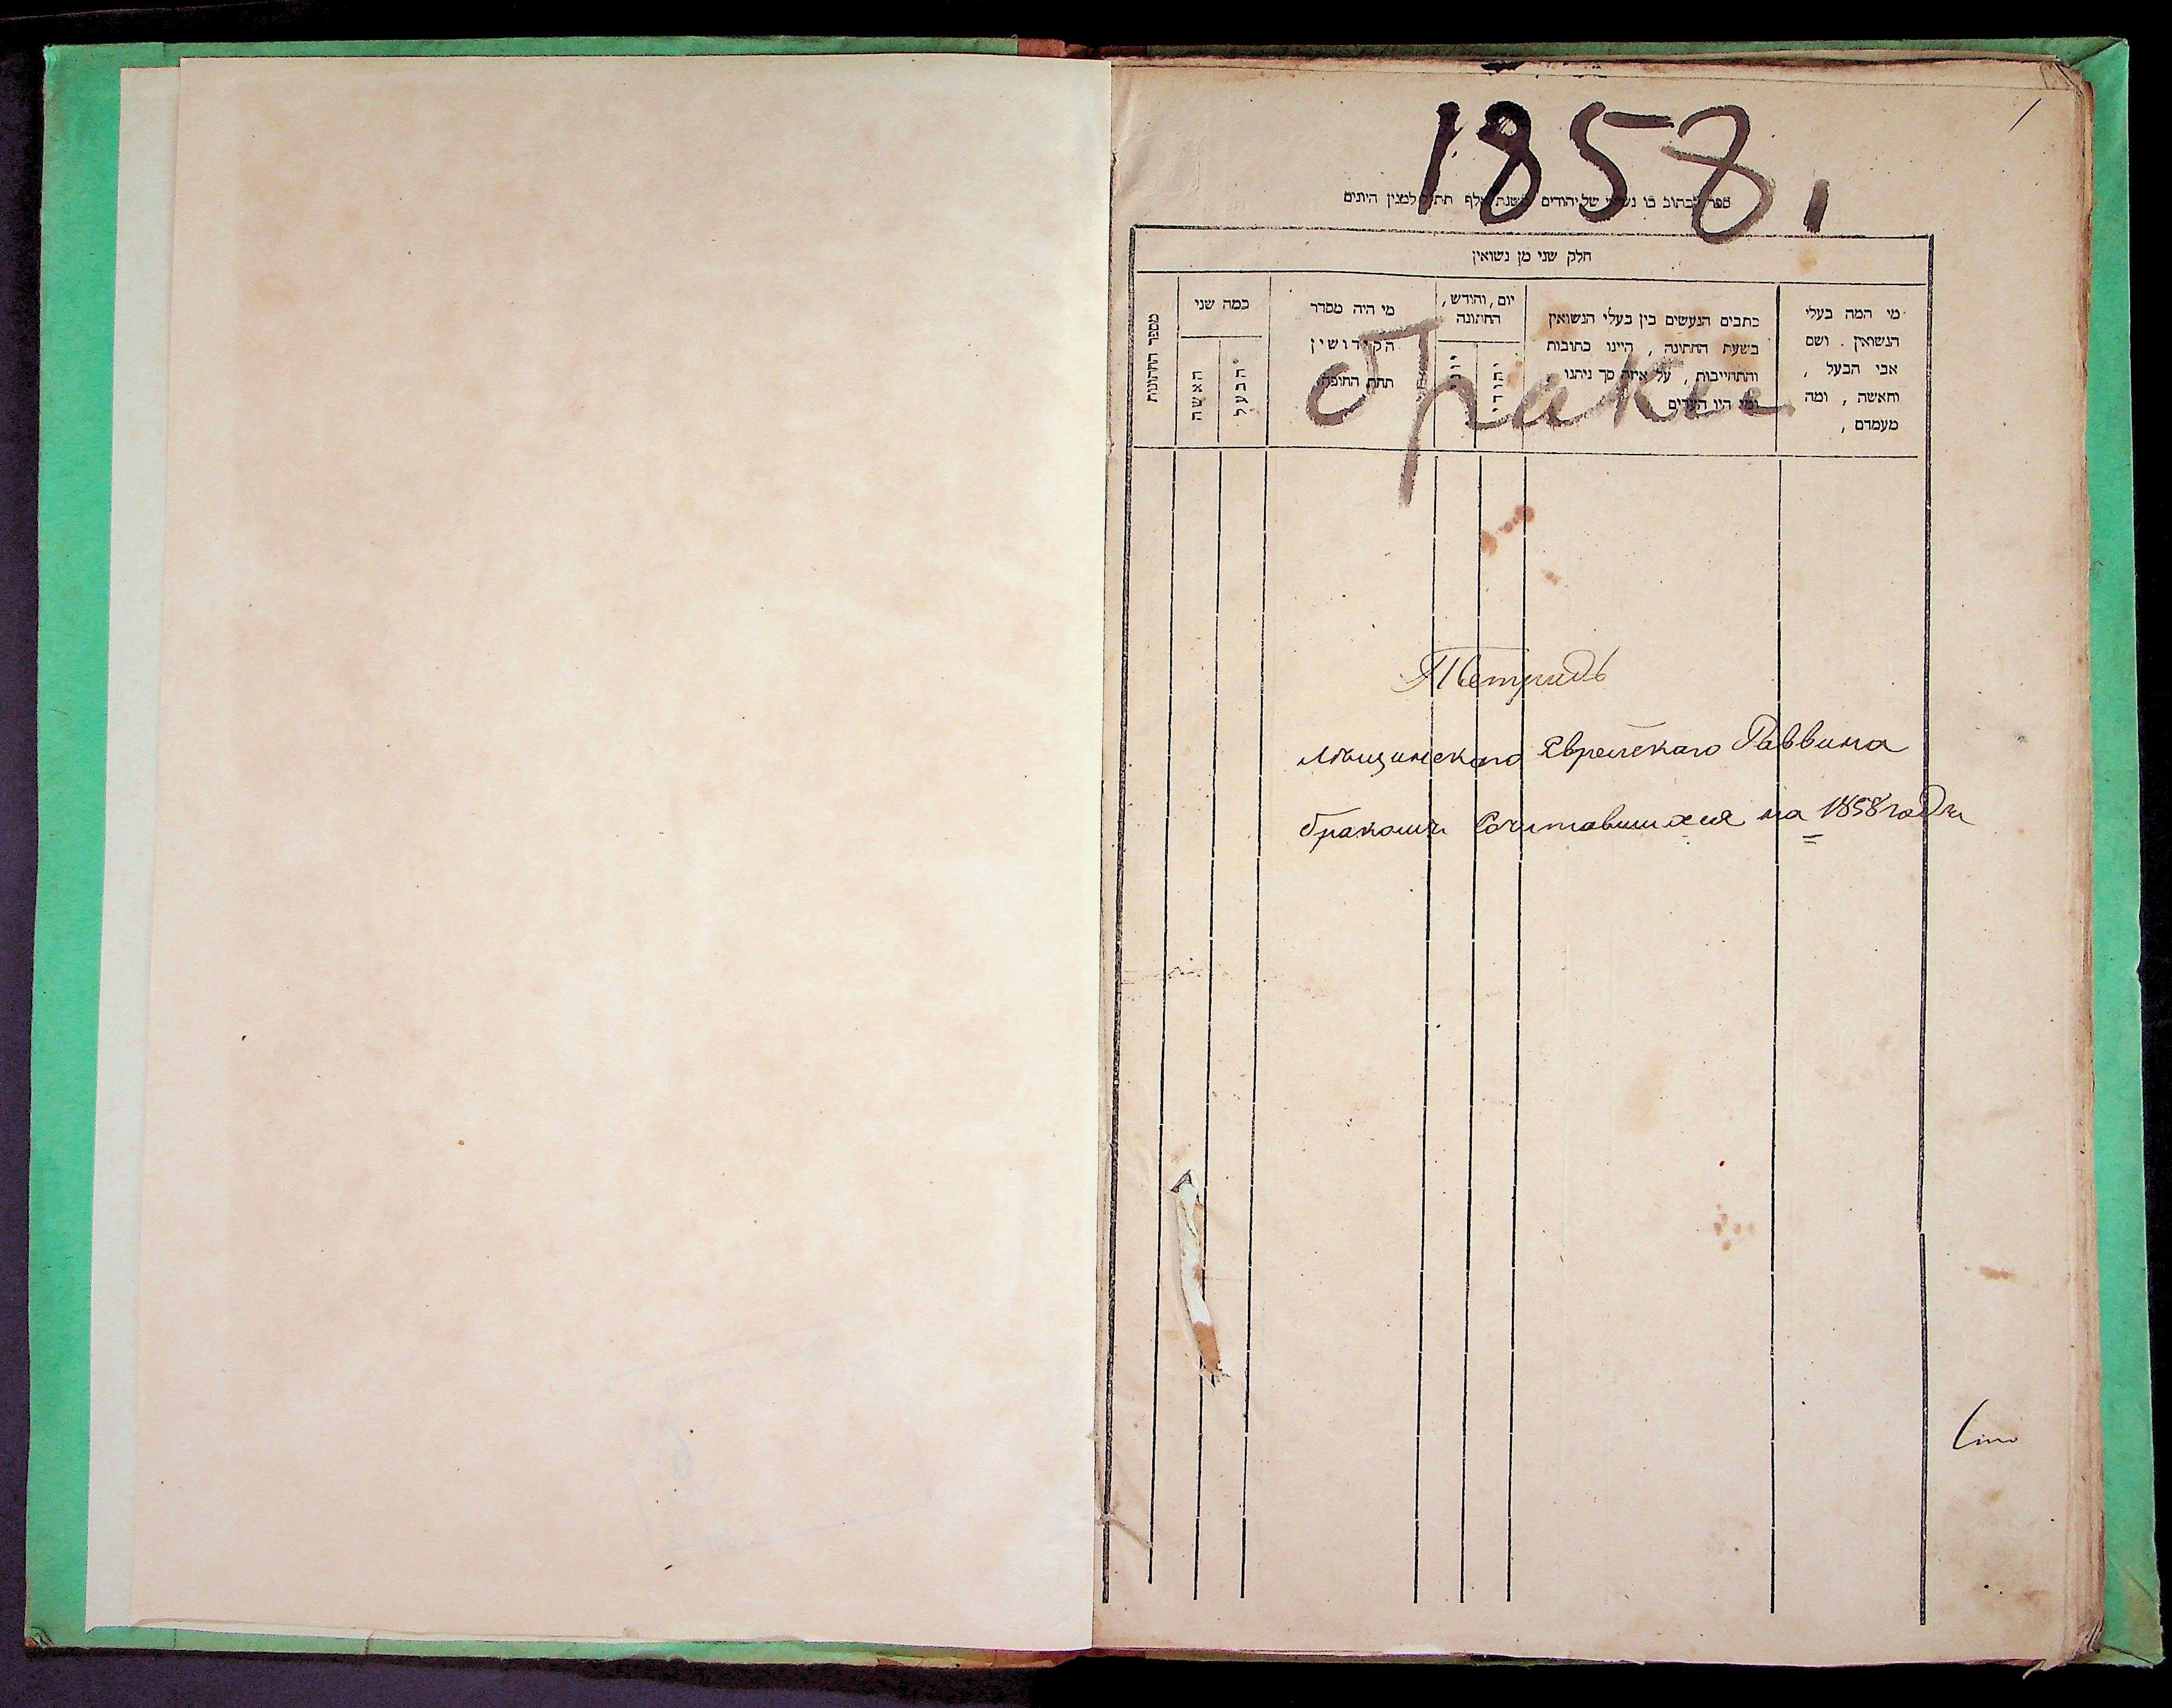 1
1858.
ספר הכתוב בו נשואי של יהודים בשנת אלף תתנ למנין היונים
חלק שני מן נשואין
מי המה בעלי
הנשואין . ושם
אבי הבעל ,
והאשה , ומה
מעמדם ,
כתבים הנעשים בין בעלי הנשואין
בשעת החתונה , היינו כתובות
והתחייבות , על איזה סך ניתנו
ומי היו העדים
יום , וחודש ,
החתונה
יהודי
יוני
מי היה מסדר
הקידושין
תחת החופה
כמה שני
הבעל
האשה
מספר החתונות
Браке
Тетридь
Еврейскаго Раввина
бракомъ Сочитавшихся на 1858 годъ